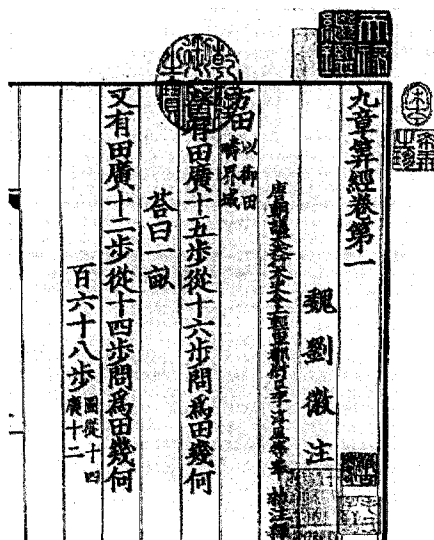 九章算經卷第一
魏劉徽注
唐朝議大夫行太史令上輕車都尉臣李淳風等奉 注釋
方田以御田疇界域
今有田廣十五步從十六步問爲田幾何
荅曰一畝
又有田廣十二步從十四步問爲田幾何
百六十八步圖從十四廣十二